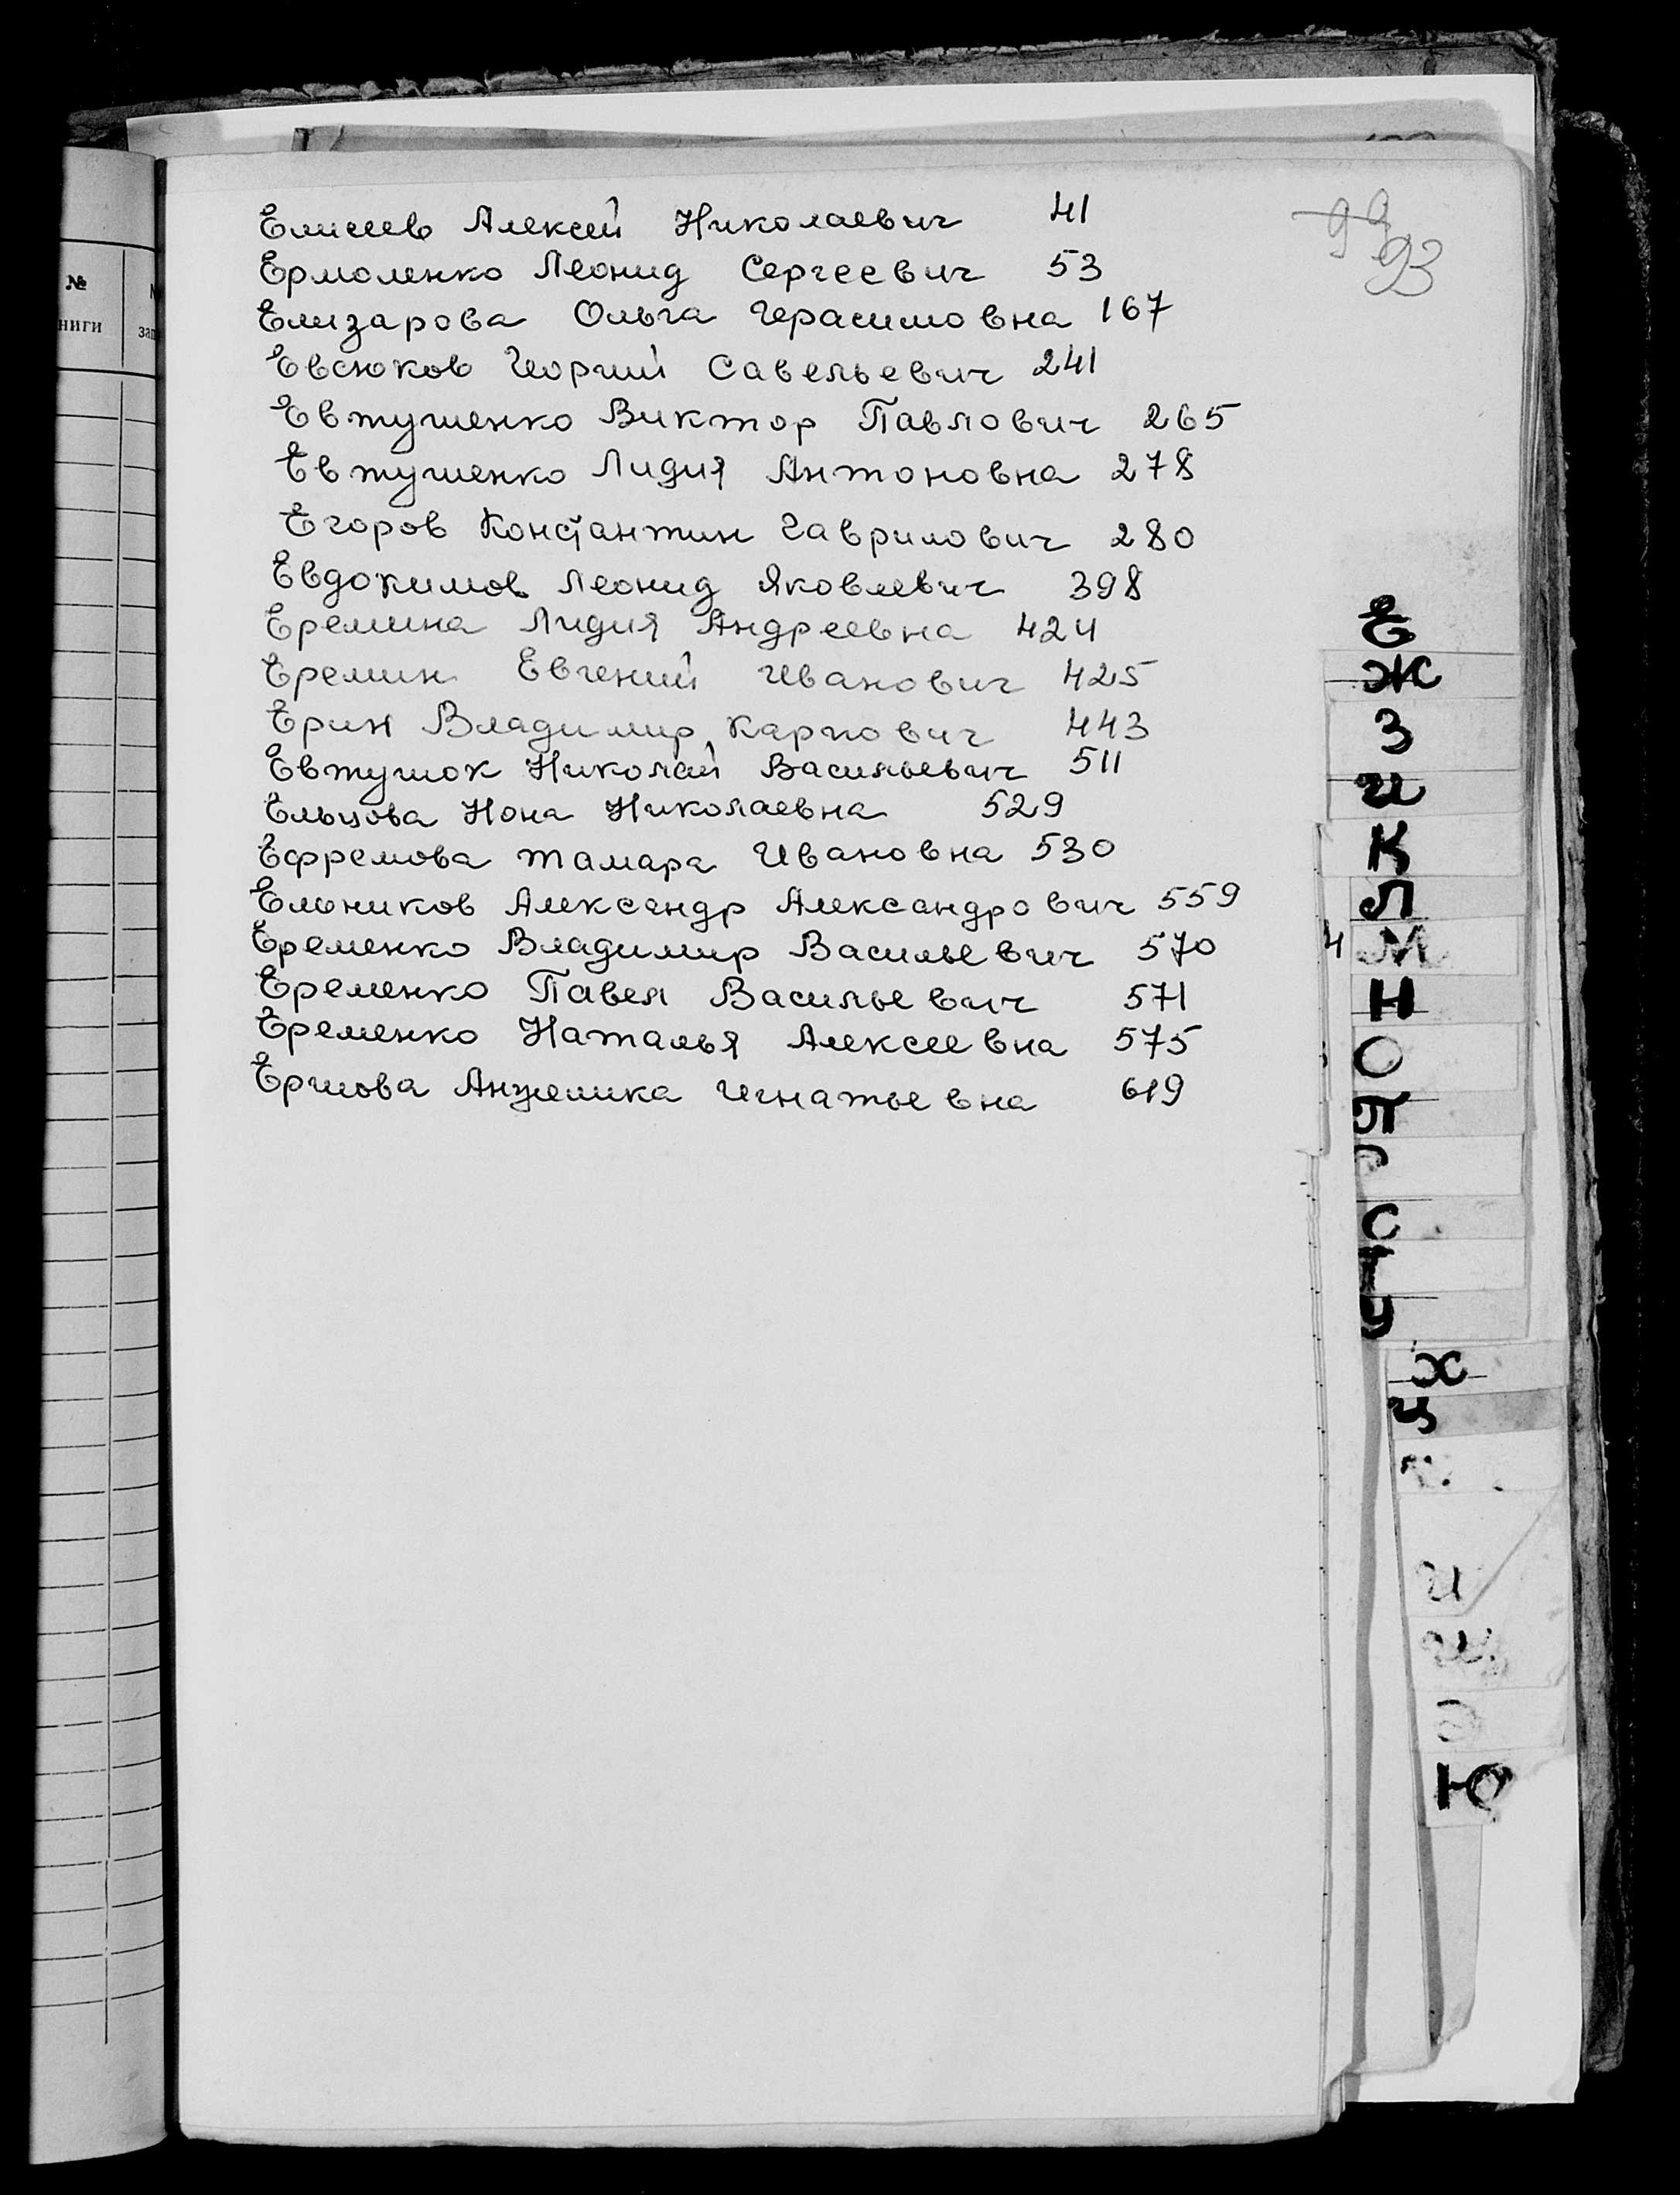 Елисеев Алексей Николаевич 41
Ермоленко Леонид Сергеевич 53
Елизарова Ольга Герасимовна 167
Евсюков Георгий Савельевич 241
Евтушенко Виктор Павлович 265
Евтушенко Лидия Антоновна 278
Егоров Константин Гаврилович 280
Евдокимов Леонид Яковлевич 398
Еремина Лидия Андреевна 424
Еремин Евгений Иванович 425
Ерин Владимир Карпович 443
Евтушок Николай Васильевич 511
Ельцова Нона Николаевна 529
Ефремова Тамара Ивановна 530
Ельников Александр Александрович 559
Еременко Владимир Васильевич 570
Еременко Павел Васильевич 571
Еременко Наталья Алексеевна 575
Ершова Анжелика Игнатьевна 619
99
93
№
ниги
Е
Ж
З
И
К
Л
М
Н
О
П
Р
С
Т
У
Х
Ц
Ю